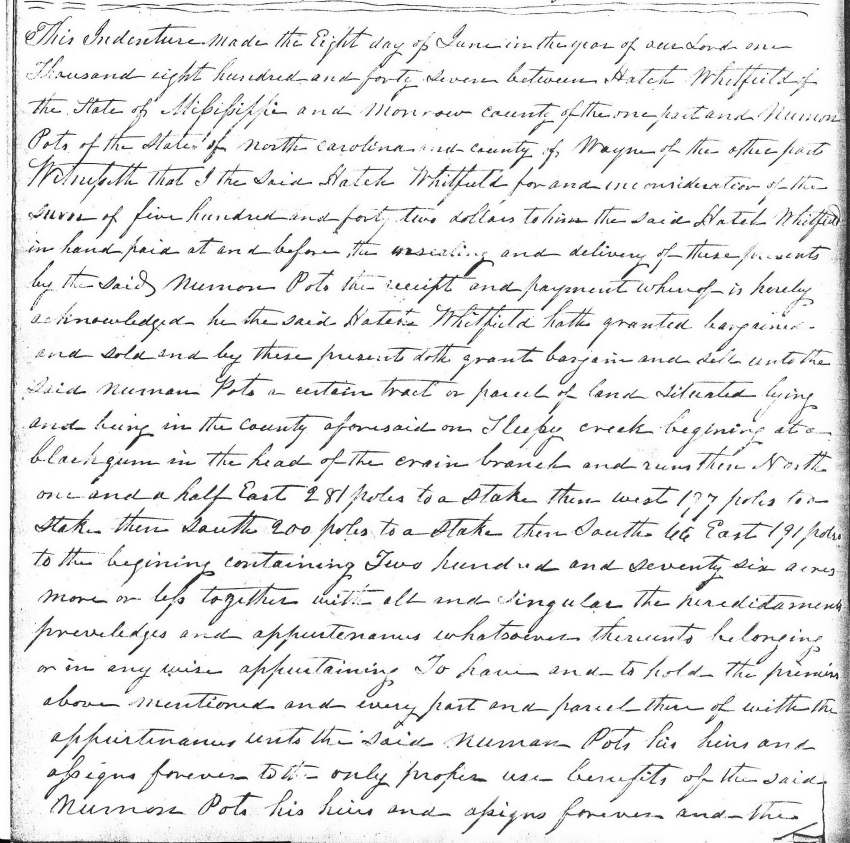 This Indenture made the Eight day of June in the year of our Lord one
Thousand eight hundred and forty seven between Hatch Whitfield of
the State of Missisippie and Monrow county of the one part and Numon
Pots of the State of North Carolina and county of Wayne of the other part
Witnesseth that I the said Hatch Whitfield for and inconsideration of the
sum of five hundred and forty two dollars to him the said Hatch Whitfield
in hand paid at and before the ensealing and delivery of these presents
by the said Numon Pots the receipt and payment wherof is hereby
acknowledged he the said Hatch Whitfield hath granted bargained
and sold and by these presents doth grant bargain and sell unto the
said Numan Pots a certain tract or parcel of land situated lying
and being in the county aforesaid on Sleepy creek begining at a
blackgum in the head of the crain branch and runs then North
one and a half East 281 poles to a stake then west 177 poles to a
stake then South 200 poles to a stake then South 66 East 191 poles
to the begining containing Two hundred and seventy six acres
more or less together with all and singular the hereditaments
preveledges and appurtenanus whatsoever thereunto belonging
or in any wise appurtaining To have and to hold the premises
above mentioned and every part and parcel there of with the
appurtenanus unto the said Numan Pots his heirs and
assigns forever to the only proper use benefits of the said
Numon Pots his heirs and assigns forever and the